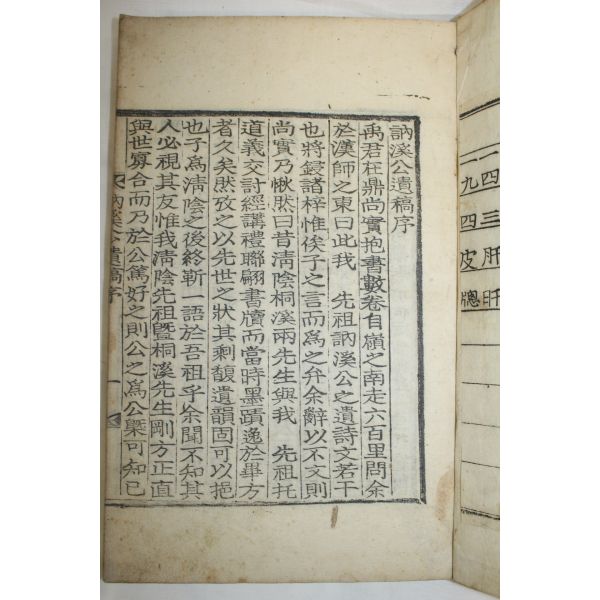 一四三肝肝
一九四皮牕
訥溪公遺稿序
禹君在鼎尚實抱書數卷自嶺之南走六百里問余
於漢師之東曰此我 先祖訥溪公之遺詩文若干
也將鋟諸梓惟俟子之言而爲之弁余辭以不文則
尚實乃愀然曰昔淸陰桐溪兩先生與我 先祖托
道義交討經講禮聯翩書牘而當時墨蹟逸於畢方
者久矣然攷之以先世之狀其剩馥遺韻固可以挹
也子爲淸陰之後終靳一語於吾祖乎余聞不知其
人必視其友惟我淸陰先祖曁桐溪先生剛方正直
與世寡合而乃於公篤好之則公之爲公槩可知已
訥溪公遺稿序 一